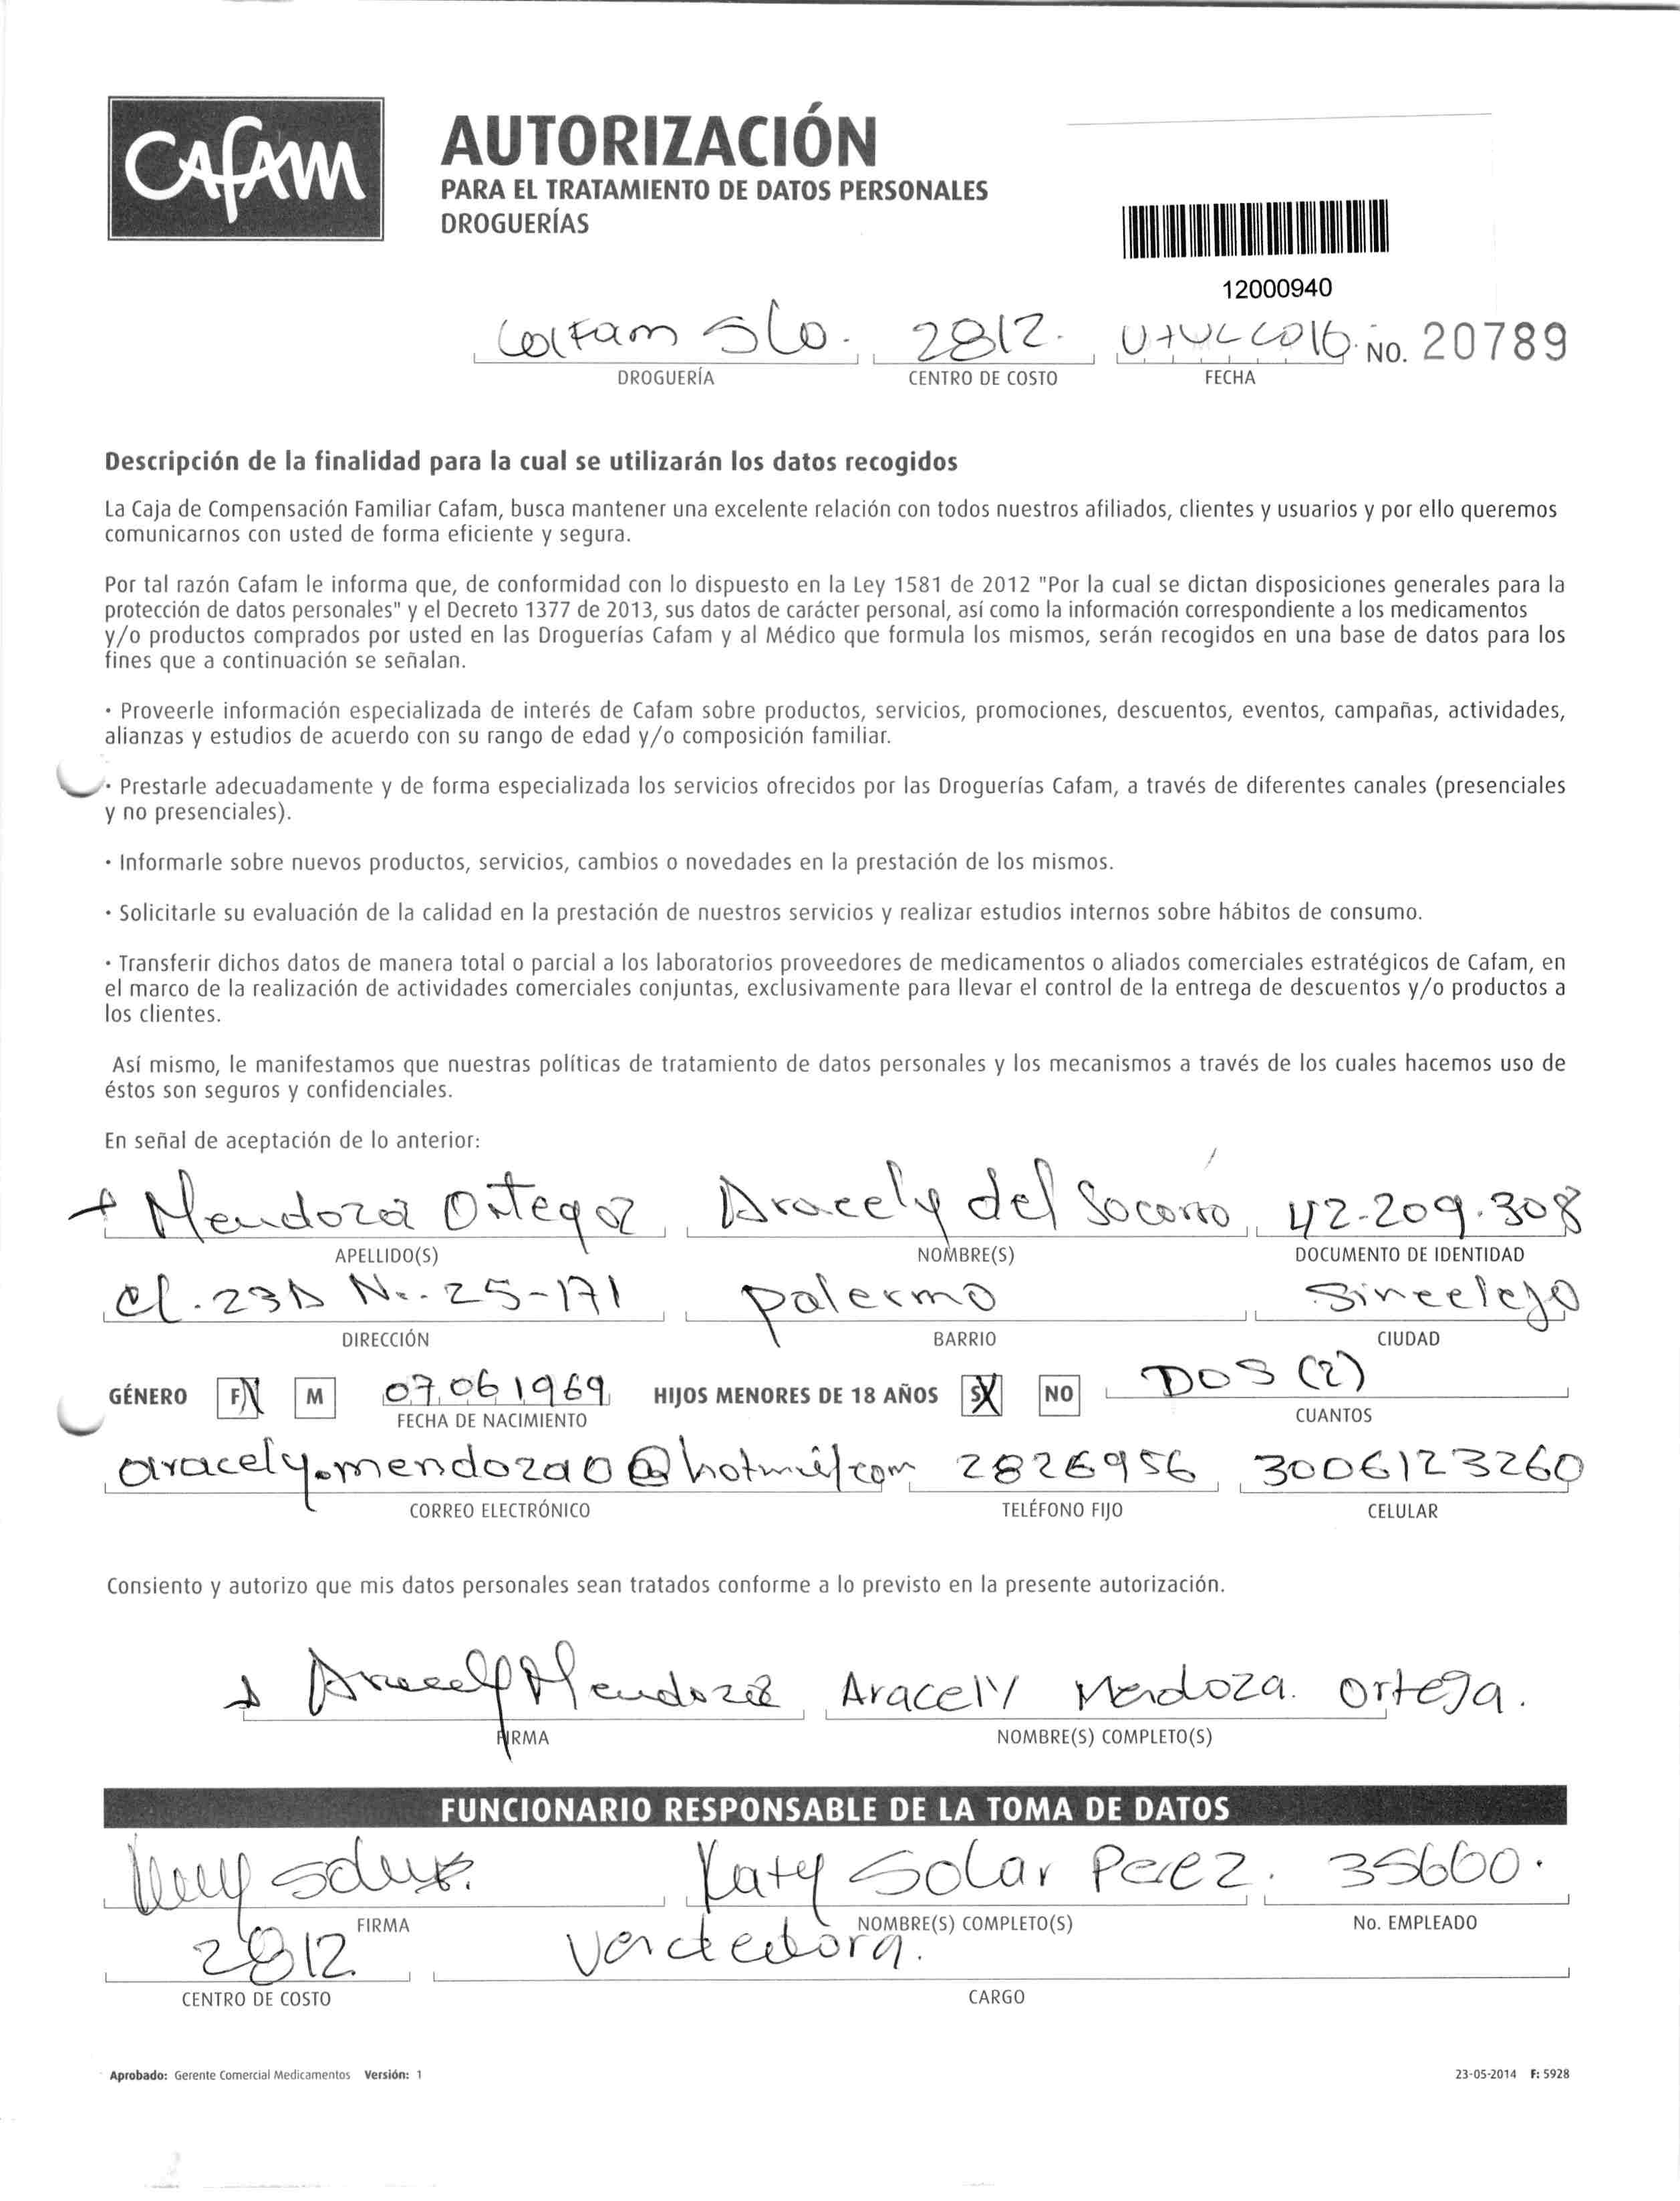 CAFAM
AUTORIZACIÓN
PARA EL TRATAMIENTO DE DATOS PERSONALES
DROGUERÍAS
12000940
2812. No. 20789
DROGUERÍA CENTRO DE COSTO FECHA
Descripción de la finalidad para la cual se utilizarán los datos recogidos
La Caja de Compensación Familiar Cafam, busca mantener una excelente relación con todos nuestros afiliados, clientes y usuarios y por ello queremos
comunicarnos con usted de forma eficiente y segura.
Por tal razón Cafam le informa que, de conformidad con lo dispuesto en la Ley 1581 de 2012 "Por la cual se dictan disposiciones generales para la
protección de datos personales" y el Decreto 1377 de 2013, sus datos de carácter personal, así como la información correspondiente a los medicamentos
y/o productos comprados por usted en las Droguerías Cafam y al Médico que formula los mismos, serán recogidos en una base de datos para los
fines que a continuación se señalan.
· Proveerle información especializada de interés de Cafam sobre productos, servicios, promociones, descuentos, eventos, campañas, actividades,
alianzas y estudios de acuerdo con su rango de edad y/o composición familiar.
· Prestarle adecuadamente y de forma especializada los servicios ofrecidos por las Droguerías Cafam, a través de diferentes canales (presenciales
y no presenciales).
· Informarle sobre nuevos productos, servicios, cambios o novedades en la prestación de los mismos.
· Solicitarle su evaluación de la calidad en la prestación de nuestros servicios y realizar estudios internos sobre hábitos de consumo.
· Transferir dichos datos de manera total o parcial a los laboratorios proveedores de medicamentos o aliados comerciales estratégicos de Cafam, en
el marco de la realización de actividades comerciales conjuntas, exclusivamente para llevar el control de la entrega de descuentos y/o productos a
los clientes.
Así mismo, le manifestamos que nuestras políticas de tratamiento de datos personales y los mecanismos a través de los cuales hacemos uso de
éstos son seguros y confidenciales.
En señal de aceptación de lo anterior:
Mendoza Ortega Aracely del Socorro 42.209.308
APELLIDO(S) NOMBRE(S) DOCUMENTO DE IDENTIDAD
Cl. 23A No. 25-171 palermo Sincelejo
DIRECCIÓN BARRIO CIUDAD
GÉNERO F X M 07 06 1969 HIJOS MENORES DE 18 AÑOS SI X NO DOS (2)
FECHA DE NACIMIENTO CUANTOS
aracely.mendoza0@hotmail.com 2826956 3006123260
CORREO ELECTRÓNICO TELÉFONO FIJO CELULAR
Consiento y autorizo que mis datos personales sean tratados conforme a lo previsto en la presente autorización.
Aracely Mendoza Aracely Mendoza. Ortega.
FIRMA NOMBRE(S) COMPLETO(S)
FUNCIONARIO RESPONSABLE DE LA TOMA DE DATOS
Katy Solar Perez. 35660.
FIRMA NOMBRE(S) COMPLETO(S) No. EMPLEADO
2812 Vendedora.
CENTRO DE COSTO CARGO
Aprobado: Gerente Comercial Medicamentos Versión: 1 23-05-2014 F: 5928